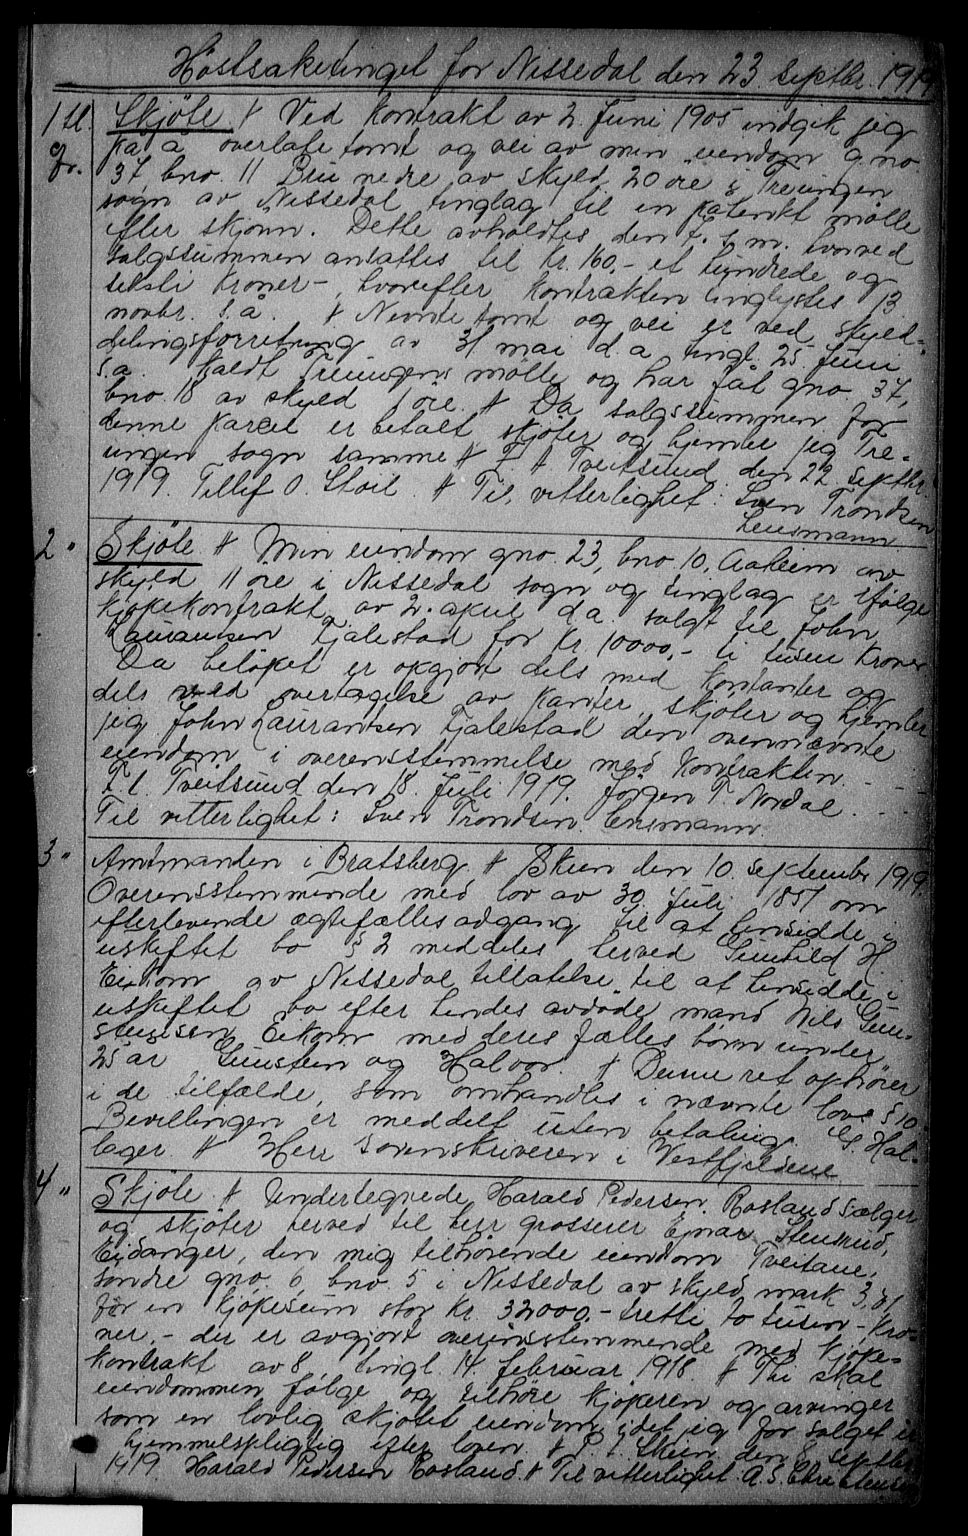 Höstsaketinget for Nissedal den 23 Septbr. 1919
1 tl. Skjöte # Ved Kontrakt av 2. Juni 1905 indgik jeg
fr. paa å overlate tomt og vei av min eiendom g.no.
37 bno. 11 Bru nedre av skyld 20 öre i Treungen
sogn av Nissedal tinglag til en patenkt mølle
efter skjönn. Dette avholdtes den 7. s.m. hvorved
salgssummen ansattes til Kr. 160,- et hundrede og
seksti Kroner -, hvorefter Kontrakten tinglystes 13
novbr. s.å. # Nevnte tomt og vei er ved skyld-
delingsforretning av 31 mai d.a. tingl. 25 Juni
s.a. kaldt Treungens mölle og har fåt gno. 37,
bno. 18 av skyld 1 öre. # Da salgssummen for
denne parcel er betalt skjöter og hjemler jeg Tre-
ungen sogn samme # T. t. Tveitsund den 22 Septbr.
1919. Tellef O. Stoil. # Til vitterlighet: Sven Trondsen
Lensmann
2 " Skjöte # Min eiendom gno. 23, bno. 10, Aaheim av
skyld 11 öre i Nissedal sogn og tinglag er ifölge
Kjöpekontrakt av 2. april d.a. solgt til John
Laurantsen Fjalestad for Kr. 10000,- ti tusen Kroner
Da belöpet er opgjort dels med Kontanter og
dels ved overtagelse av panter, skjöter og hjemler
jeg John Laurantsen Fjalestad den ovennævnte
eiendom i overensstemmelse med Kontrakten. -
T. t. Tveitsund den 18. Juli 1919. Jörgen T. Nordal
Til vitterlighet: Sven Trondsen. Lensmann.
3 " Amtmanden i Bratsberg # Skien den 10. september 1919.
Overensstemmende med lov av 30. Juli 1851 om
efterlevende ægtefælles adgang til at hensidde i
uskiftet bo § 2 meddeles herved Gunhild H.
Eikom av Nissedal tillatelse til at hensidde i
uskiftet bo efter hendes avdöde mand Nils Gun-
steinsen Eikom med deres fælles börn under
25 år Gunstein og Halvor. # Denne ret ophörer
i de tilfælde, som omhandles i nævnte lovs § 10.
Bevillingen er meddelt uten betaling. G. Hal-
lager # Herr Sorenskriveren i Vestfjeldene
4 " Skjöte # Undertegnede Harald Pedersen Rosland sælger
og skjöter herved til herr grosserer Einar Stensrud,
Eidanger, den mig tilhörende eiendom Tveitane,
söndre gno. 6 bno. 5 i Nissedal av skyld mark 3,81
for en kjöpesum stor Kr. 32000,- tretti to tusen - Kro-
ner,- der er avgjort overensstemmende med Kjöpe-
kontrakt av 8, tingl. 14. februar 1918. # Thi skal
eiendommen fölge og tilhöre kjöperen og arvinger
som en lovlig skjötet eiendom, idet jeg for salget er
hjemmelspligtig efter loven. # P. t. Skien den 8. septbr.
1919. Harald Pedersen Rosland. # Til vitterlighet: A. S. Christensen